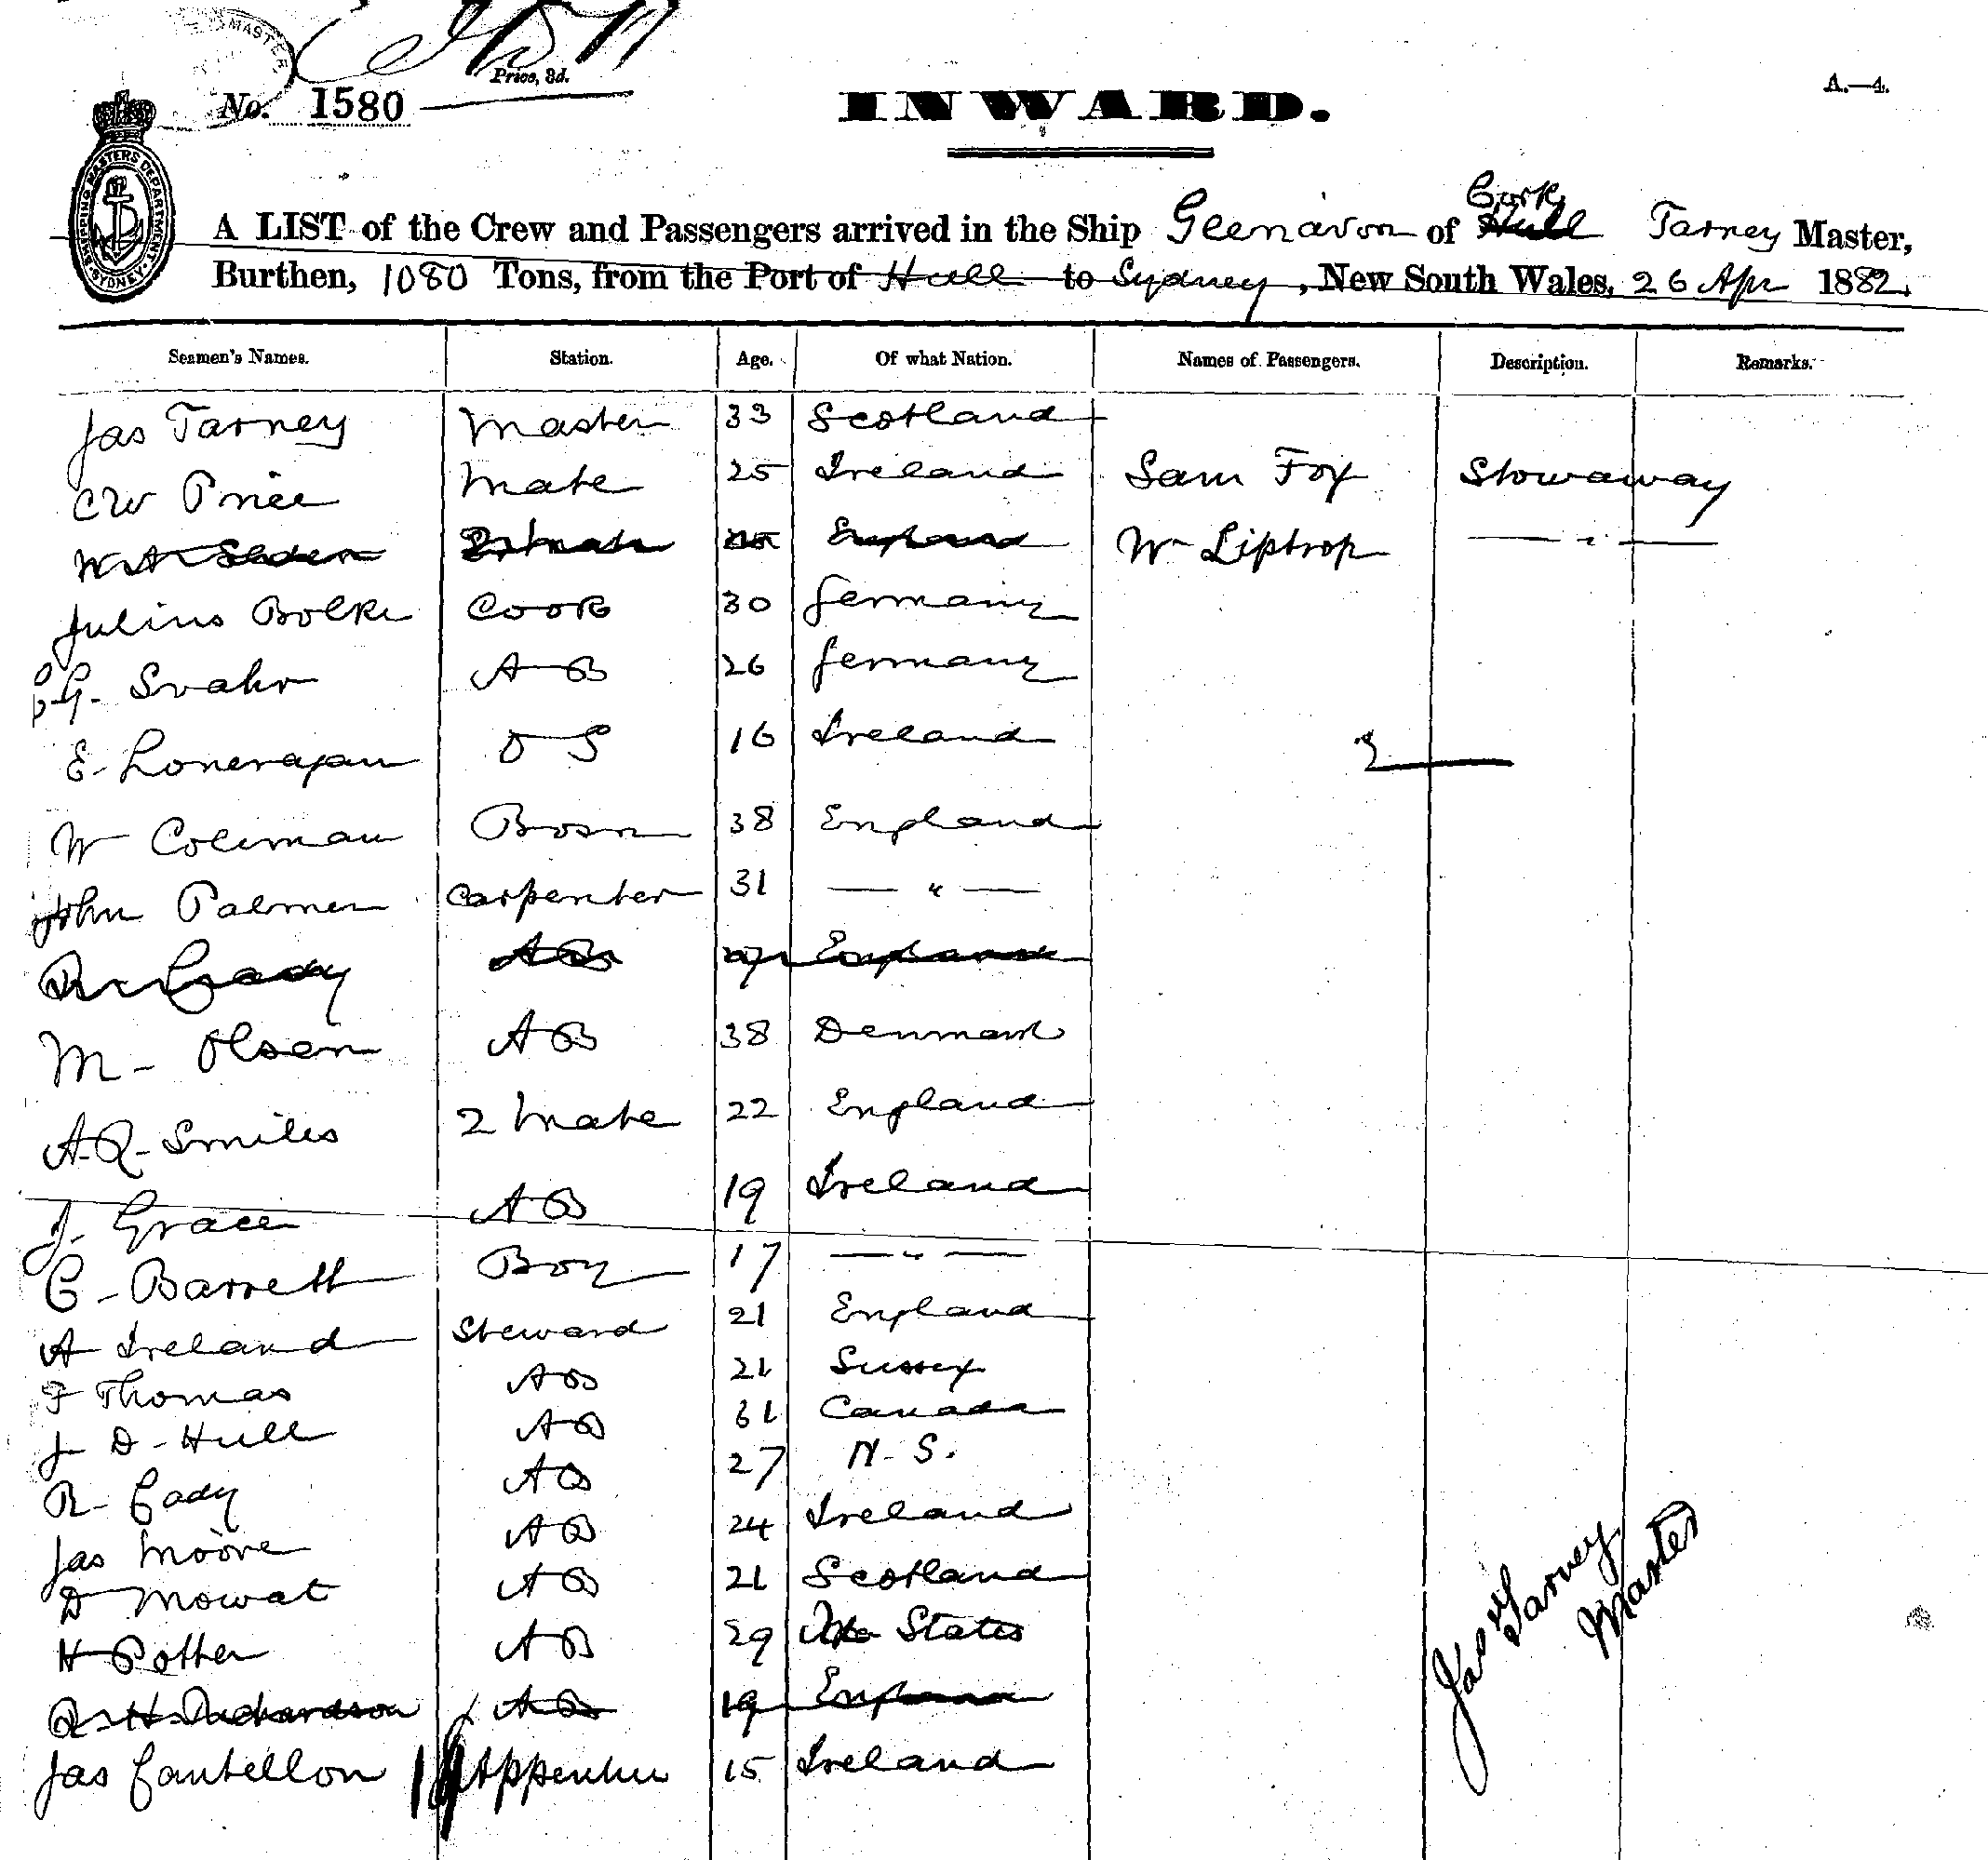 MASTER
Price, 3d.
No. 1580
INWARD.
A.—4.
SHIPPING MASTERS DEPARTMENT SYDNEY
Cork
A LIST of the Crew and Passengers arrived in the Ship Glenavon of Hull Tarney Master,
Burthen, 1080 Tons, from the Port of Hull to Sydney, New South Wales, 26 Apr 1882.
Seamen's Names. Station. Age. Of what Nation. Names of Passengers. Description. Remarks.
Jas Tarney Master 33 Scotland
CW Price Mate 25 Ireland Sam Fox Stowaway
W A 2 Mate England Wm Liptrop — " —
Julius Bolke Cook 30 Germany
G. Svahr A B 26 Germany
E. Loneragan O S 16 Ireland 2
W Coleman Bosn 38 England
John Palmer Carpenter 31 — " —
R Cady A B 27 England
M. Olsen A B 38 Denmark
A. R. Smiles 2 Mate 22 England
J. Grace A B 19 Ireland
C. Barrett Boy 17 — " —
A Ireland Steward 21 England
F Thomas A B 21 Sussex
J D. Hull A B 31 Canada
R. Cady A B 27 N. S.
Jas Moore A B 24 Ireland
D Mowat A B 21 Scotland
H Potter A B 29 States
R. H. Richardson A B 19 England
Jas Cantellon 19 Appentice 15 Ireland
Jas Tarney
Master